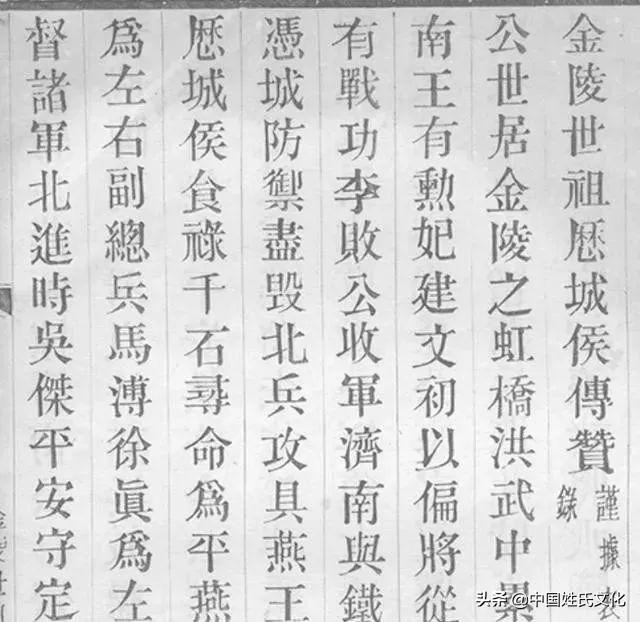 金陵世祖厯城侯傳贊 謹據
錄
公世居金陵之虹橋洪武中累
南王有勳妃建文初以偏將從
有戰功李敗公收軍濟南與鐵
憑城防禦盡毀北兵攻具燕王
厯城侯食祿千石尋命爲平燕
爲左右副總兵馬溥徐眞爲左
督諸軍北進時吳傑平安守定
头条 @中国姓氏文化